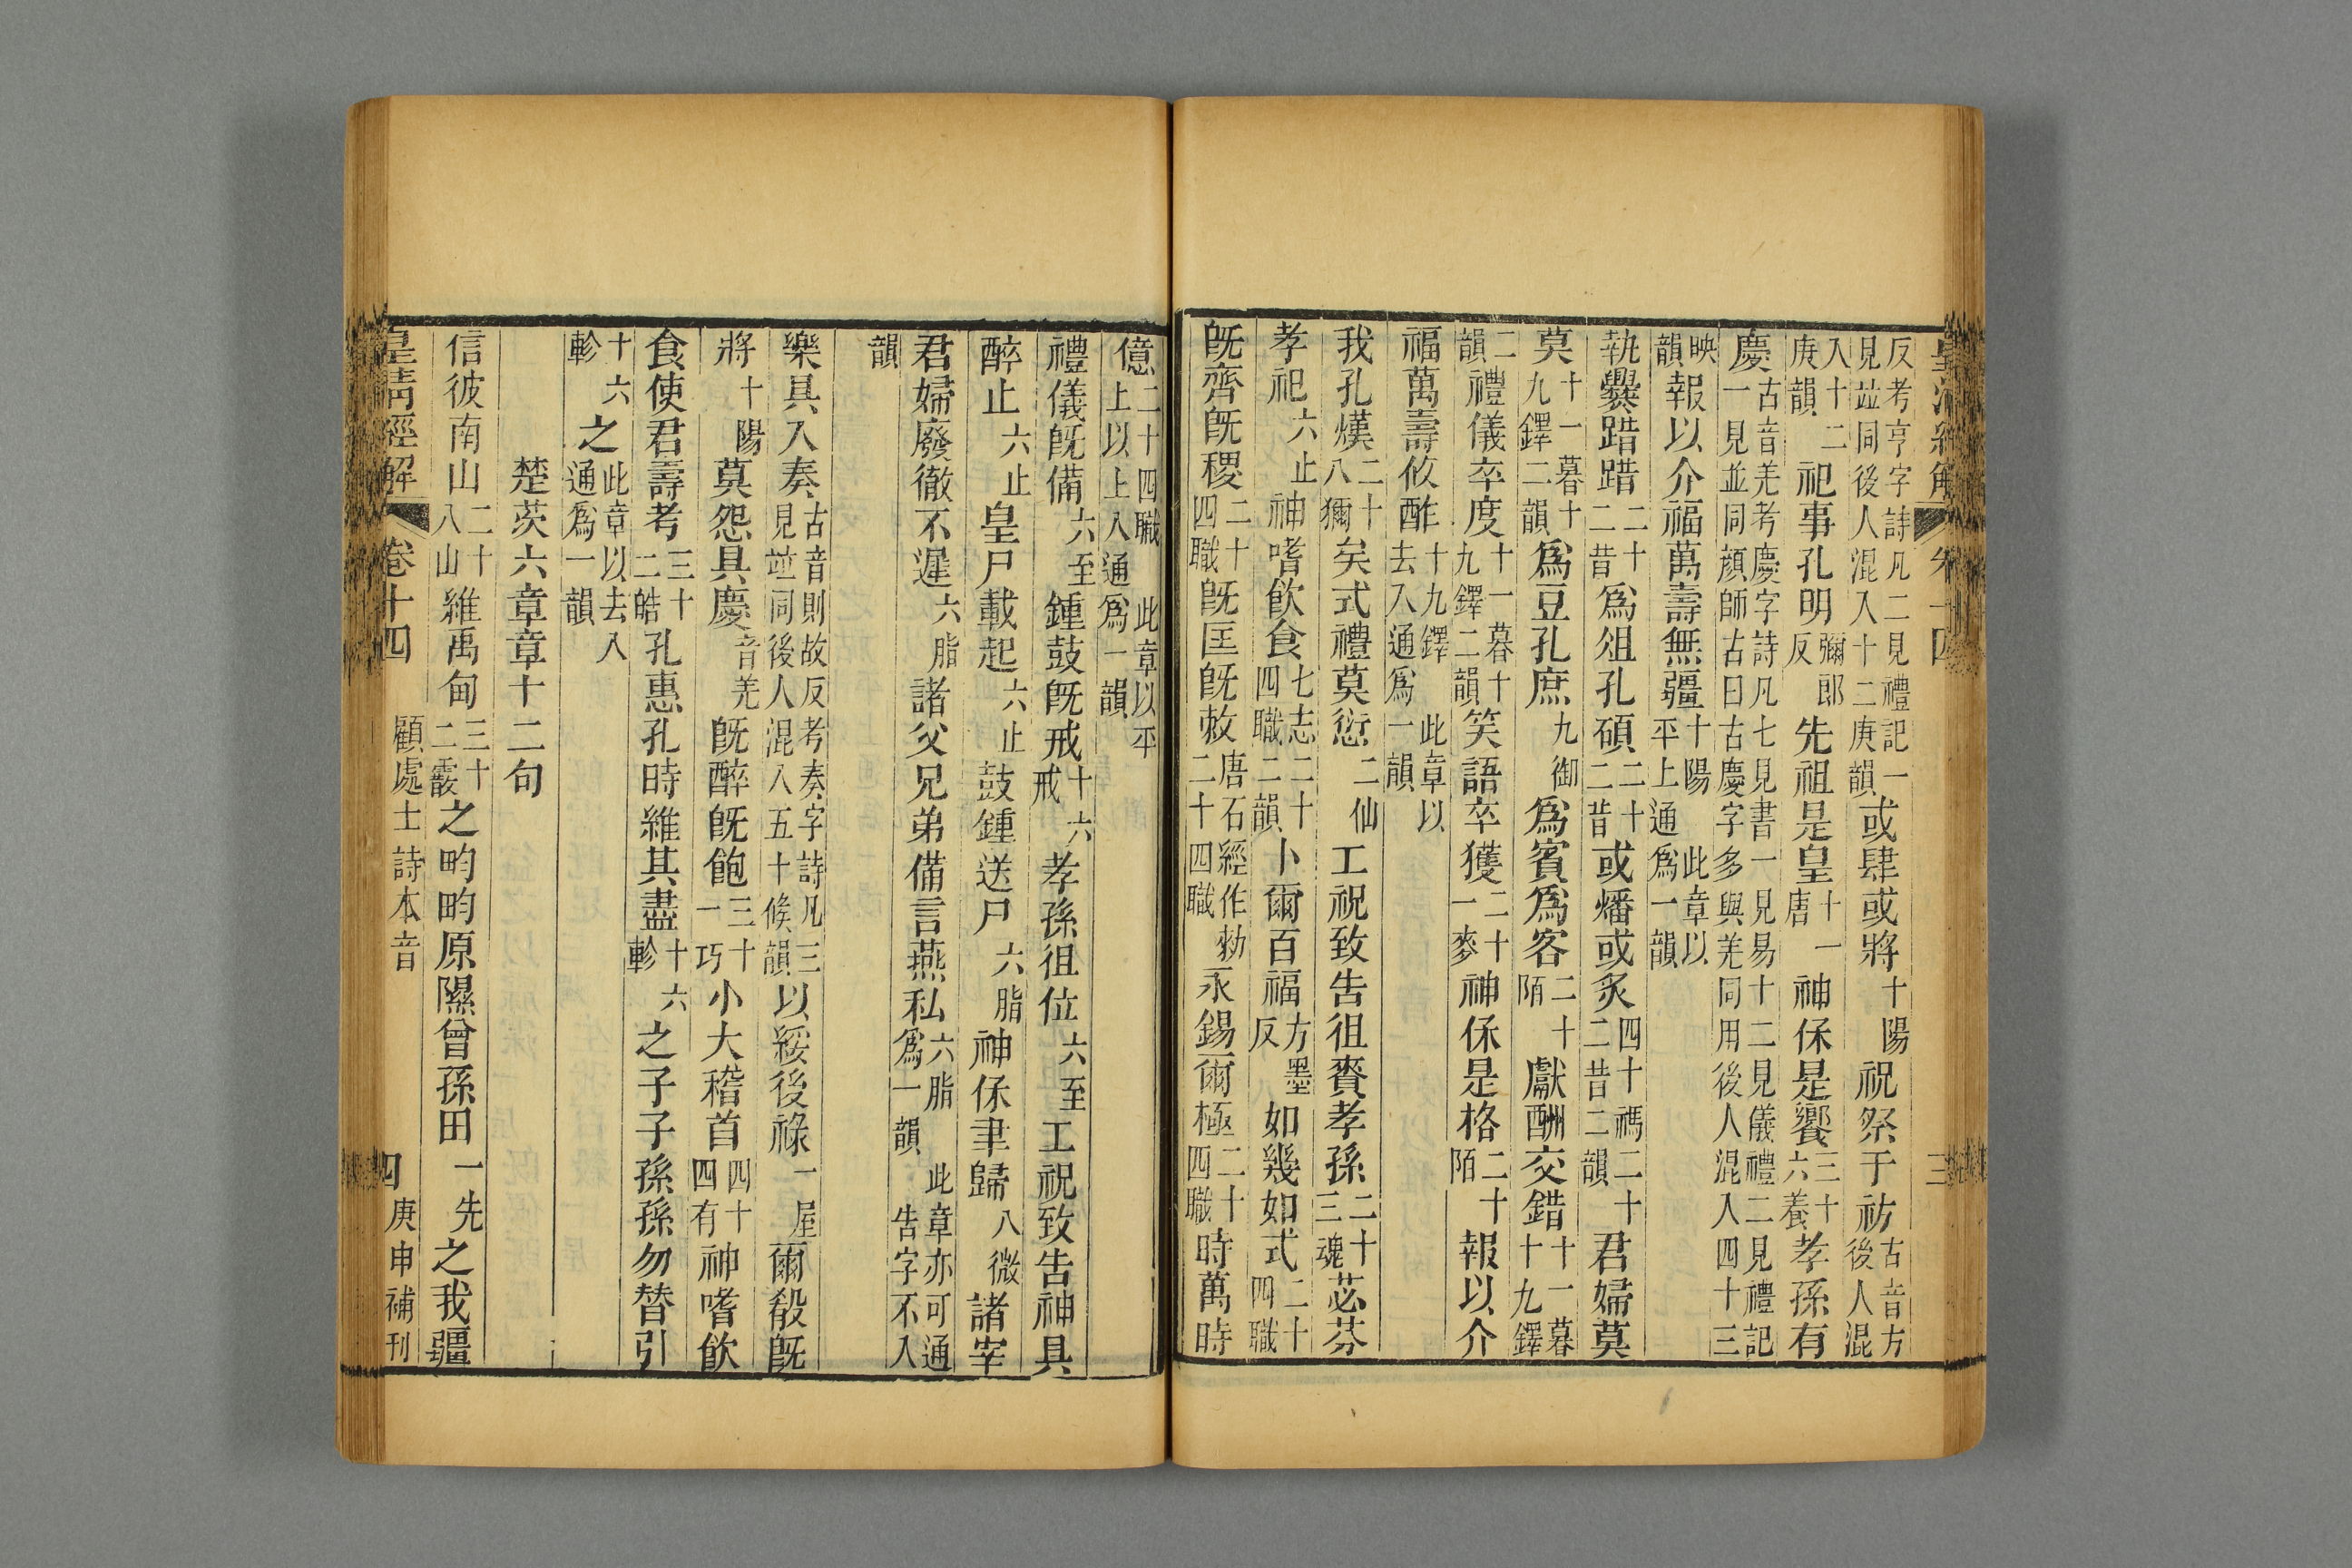 皇清經解 卷十四 三
反考亨字詩凡二見禮記一見竝同後人混入十二庚韻或肆或將十陽祝祭于祊古音方後人混
入十二庚韻祀事孔明彌郎反先祖是皇十一唐神保是饗三十六養孝孫有
慶古音羌考慶字詩凡七見書一見易十二見儀禮二見禮記一見並同顔師古曰古慶字多與羌同用後人混入四十三
映韻報以介福萬壽無疆十陽 此章以平上通爲一韻
執爨踖踖二十二昔爲俎孔碩二十二昔或燔或炙四十禡二十二昔二韻君婦莫
莫十一暮十九鐸二韻爲豆孔庶九御爲賓爲客二十陌獻酬交錯十一暮十九鐸
二韻禮儀卒度十一暮十九鐸二韻笑語卒獲二十一麥神保是格二十陌報以介
福萬壽攸酢十九鐸 此章以去入通爲一韻
我孔熯二十八獮矣式禮莫愆二仙工祝致告徂賚孝孫二十三魂苾芬
孝祀六止神嗜飲食七志二十四職二韻卜爾百福方墨反如幾如式二十四職
旣齊旣稷二十四職旣匡旣敕唐石經作勑二十四職永錫爾極二十四職時萬時
億二十四職 此章以平上以上入通爲一韻
禮儀旣備六至鍾鼓旣戒十六戒孝孫徂位六至工祝致告神具
醉止六止皇尸載起六止鼓鍾送尸六脂神保聿歸八微諸宰
君婦廢徹不遲六脂諸父兄弟備言燕私六脂 此章亦可通爲一韻 告字不入
韻
樂具入奏古音則故反考奏字詩凡三見竝同後人混入五十候韻以綏後祿一屋爾殽旣
將十陽莫怨具慶音羌旣醉旣飽三十一巧小大稽首四十四有神嗜飲
食使君壽考三十二皓孔惠孔時維其盡十六軫之子子孫孫勿替引
十六軫之此章以去入通爲一韻
楚茨六章章十二句
信彼南山二十八山維禹甸三十二霰之畇畇原隰曾孫田一先之我疆
皇清經解 卷十四 顧處士詩本音 四 庚申補刊